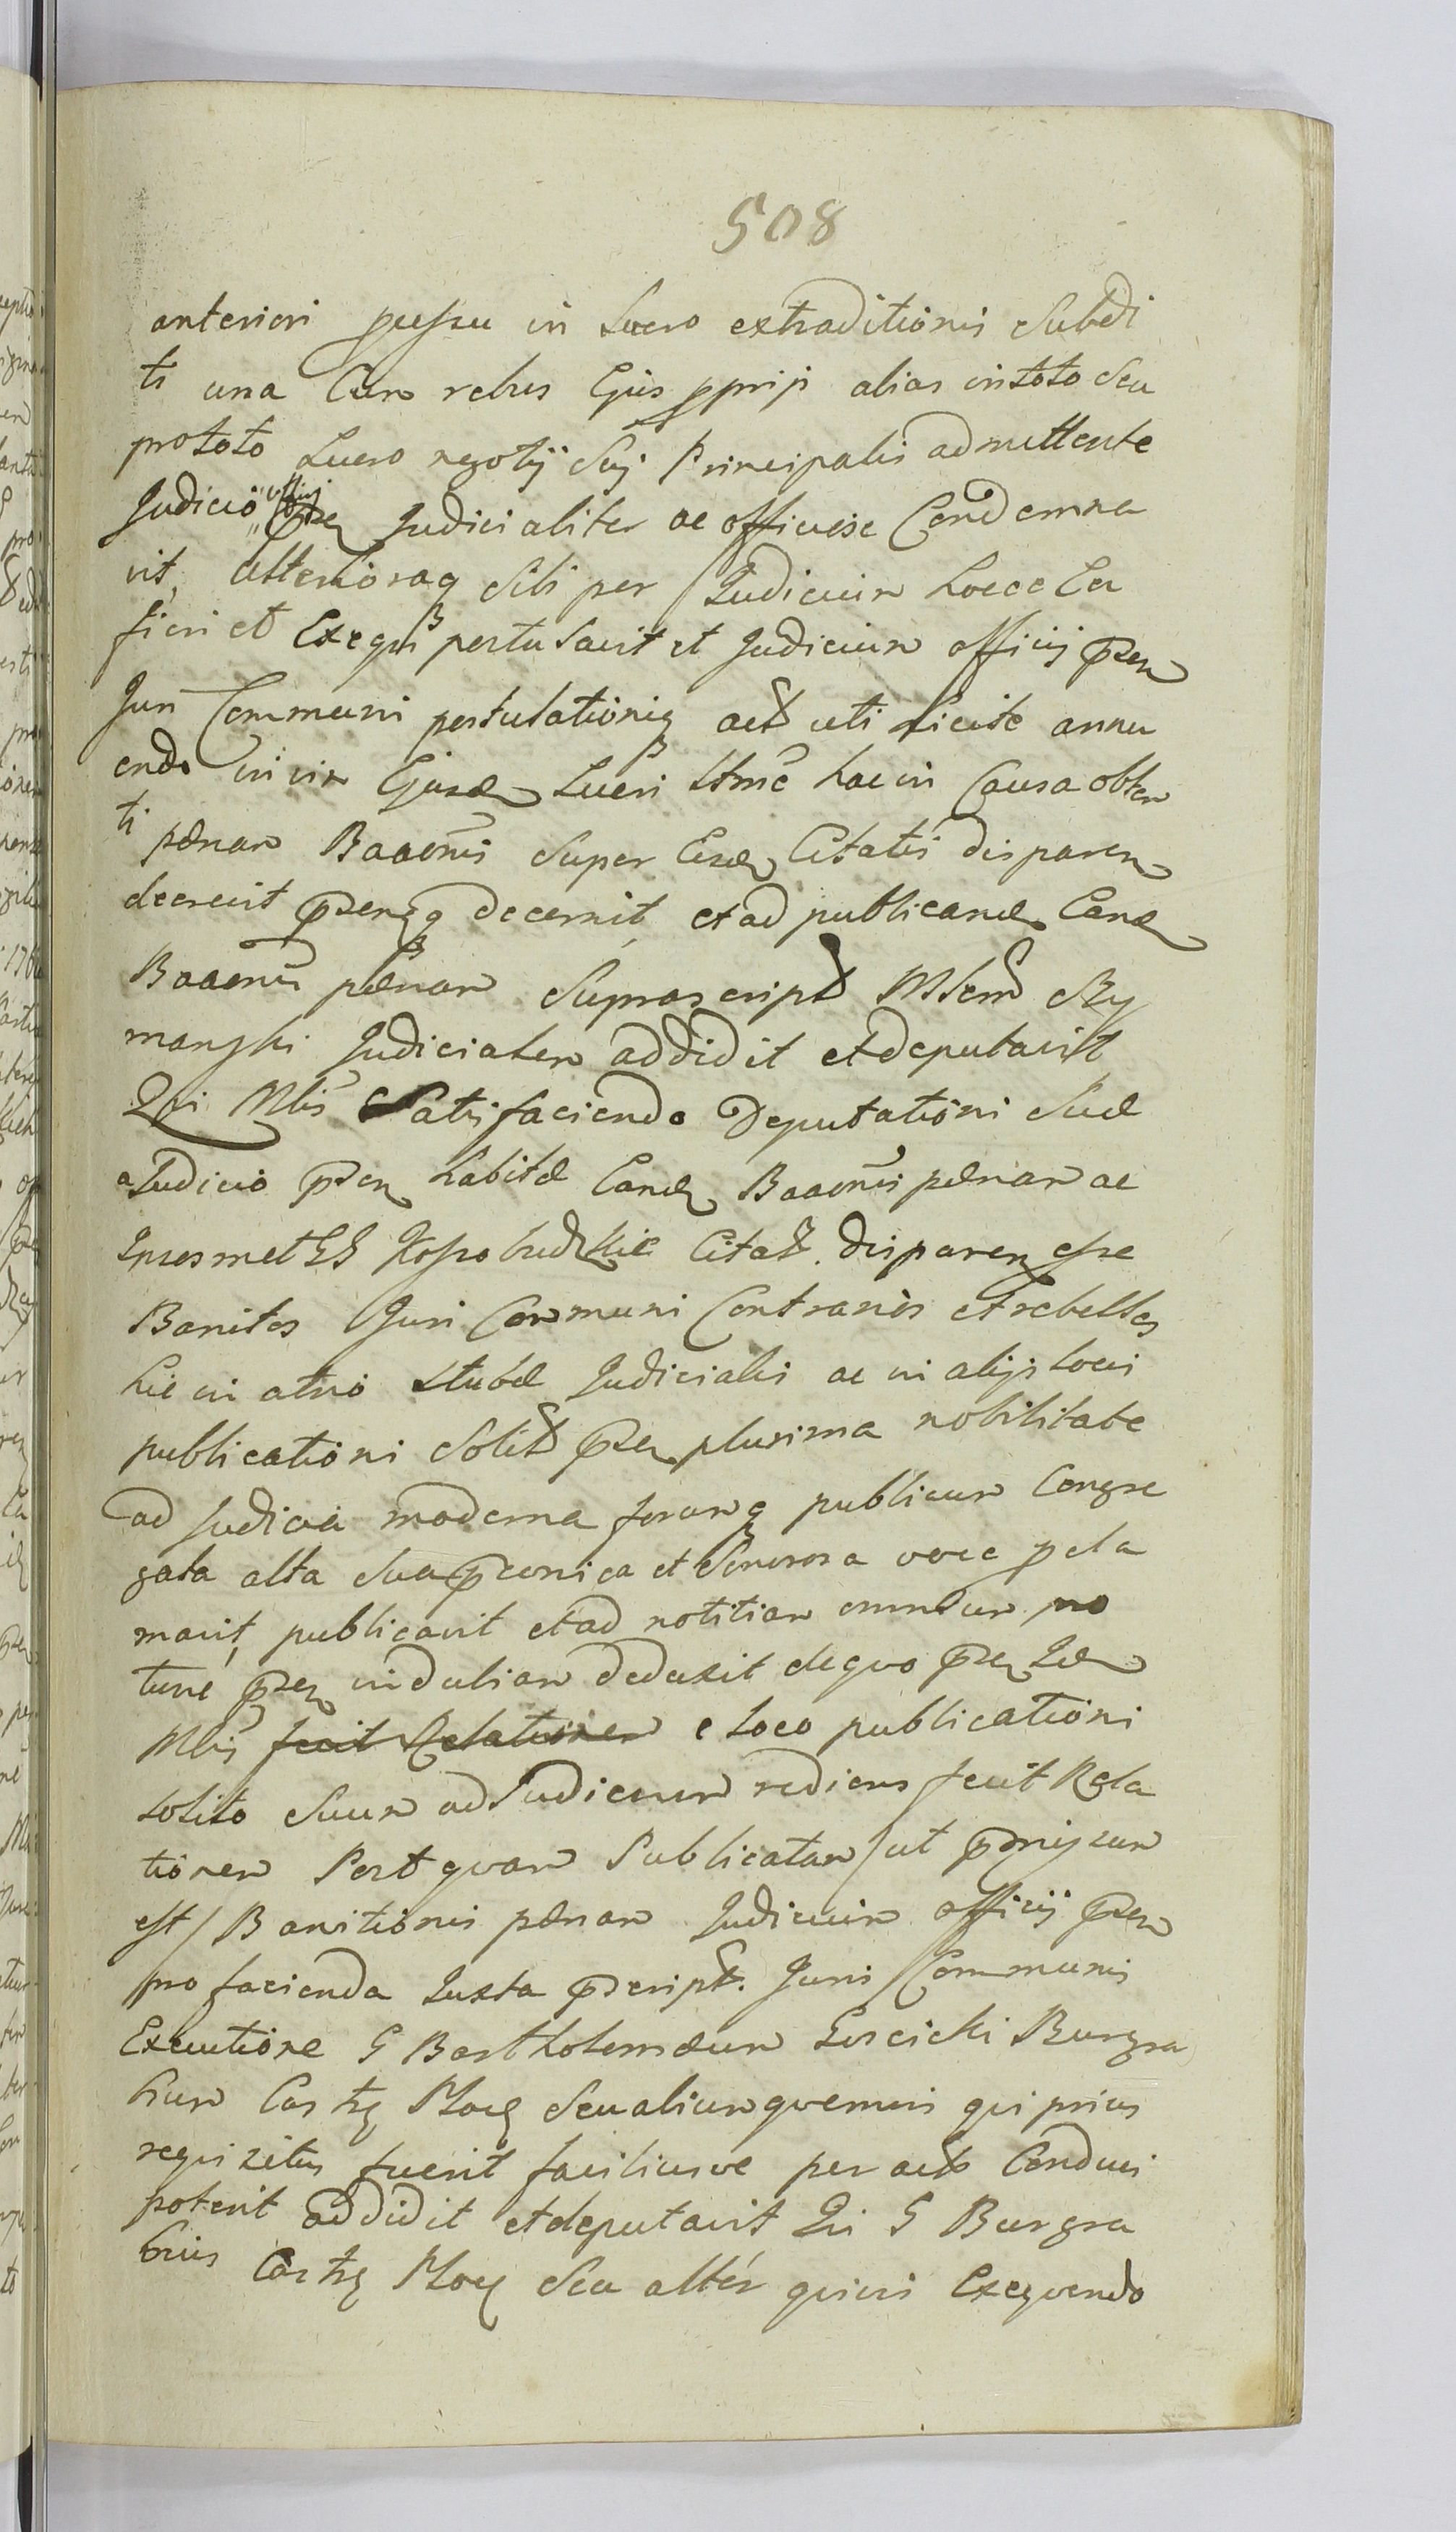 508
anteriori pressu in Lucro extraditionis Subdi
ti una Cum rebus Ejus pprijs alias in toto Seu
pro toto Lucro negotij Suj Principalis admittente
Judicio officij pñ Judicialiter ac officiose Condemna
vit, Ulterioraq Sibi per Judicium hocce Ea
fieri et Exequi postulavit et Judicium officij pñ
Juri Communi postulationiq act uti licite annu
endo in vim Ejusd Lucri hac in Causa obten
ti pænam Baaonis Super Eisd Citatis disparen
decrevit pñq decernit, et ad publicand Eand
Baaonis pænam Suprascript Mlem Szy
manski Judicialem addidit et deputavit
Qui Mlis Satisfaciendo Deputationi Suæ
a Judicio pñ habitæ Eand Baaonis pænam ac
Ipsosmet GG Kossobudzkie Citat. disparen esse
Banitos Juri Communi Contrarios et rebelles
hic in atrio Stubæ Judicialis ac in alijs locis
publicationi Solit pñ plurima nobilitate
ad Judicia moderna forumq publicum Congre
gata alta Sua præconica et Sonorosa voce pcla
mavit, publicavit et ad notitiam omnium pro
tunc pñ indubiam deduxit de quo pñ Id
Mlis fecit Relationem e loco publicationi
Solito Suum ad Judicium rediens fecit Rela
tionem Postquam Publicatam / ut præmissum
est / Banitionis pænam Judicium officij pñ
pro facienda Juxta præscript. Juris Communis
Executione G Bartholomæum Burgra
bium Castrj Ploc Seu alium quemvis qui prius
requisitus fuerit faciliusve per act Conduci
poterit addidit et deputavit Qui G Burgra
bius Castrj Ploc Seu alter quivis Exequendo